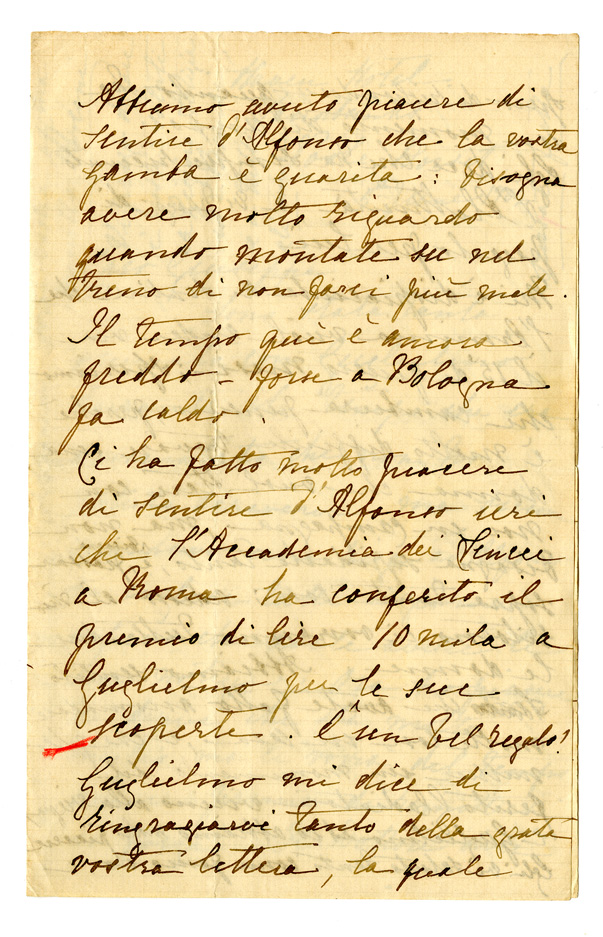 Abbiamo avuto piacere di
sentire d'Alfonso che la vostra
gamba è guarita: bisogna
avere molto riguardo
quando montate su nel
treno di non farci più male.
Il tempo qui è ancora
freddo - forse a Bologna
fa caldo.
Ci ha fatto molto piacere
di sentire d'Alfonso ieri
che l'Accademia dei Lincei
a Roma ha conferito il
premio di lire 10 mila a
Guglielmo per le sue
scoperte. È un bel regalo!
Guglielmo mi dice di
ringraziarvi tanto della grata
vostra lettera, la quale